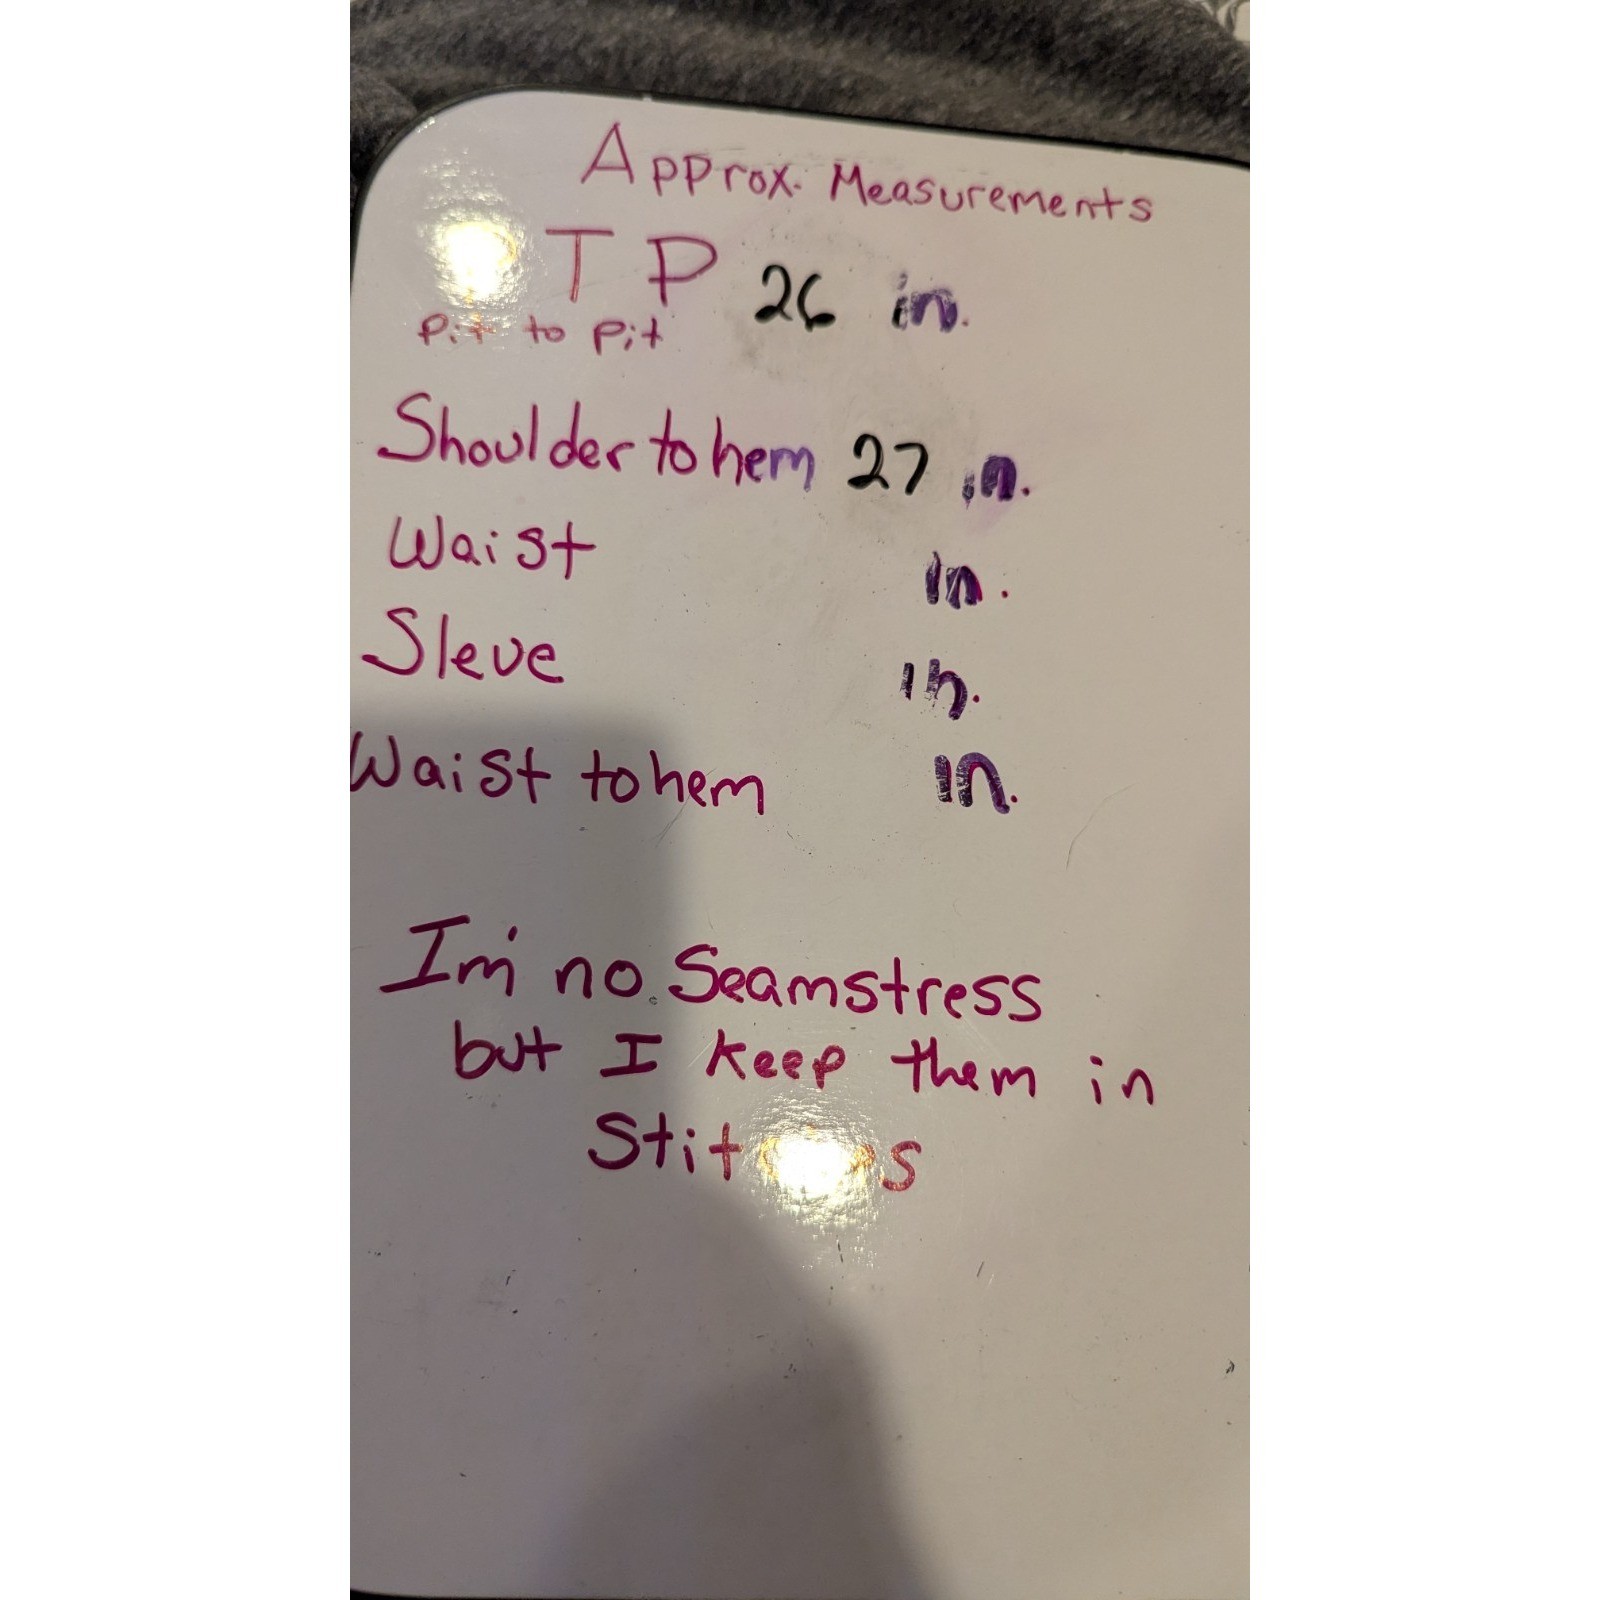 Approx. Measurements
T P 26 in.
Pit to Pit
Shoulder to hem 27 in.
Waist in.
Sleve in.
Waist to hem in.
Im' no Seamstress
but I keep them in